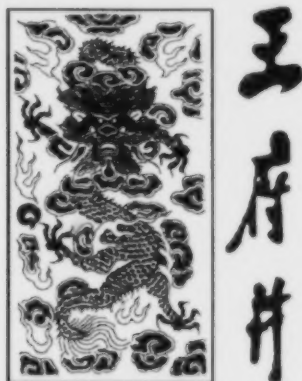 王府井